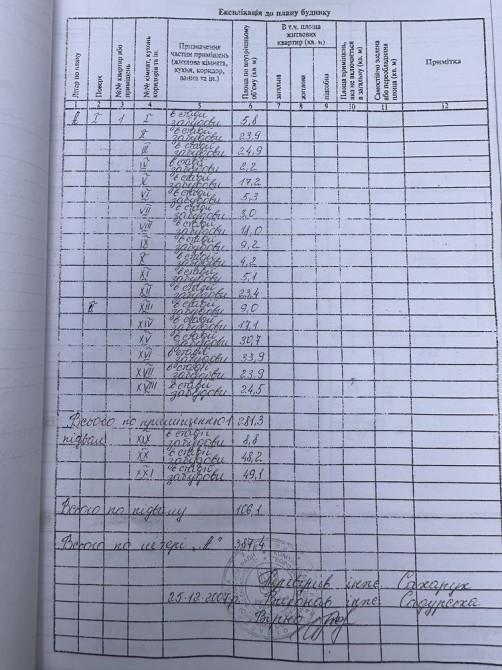 Експлікація до плану будинку
Літер по плану
Поверх
№№ квартир або приміщень
№№ кімнат, кухонь коридорів та ін.
Призначення частин приміщень (житлова кімната, кухня, коридор, ванна та ін.)
Площа по внутрішньому об'єму (кв. м)
В т.ч. площа житлових квартир (кв. м)
загальна
житлова
підсобна
Площа приміщень, яка не включається в загальну (кв. м)
Самостійно зведена або переобладнана площа (кв. м)
Примітка
1 2 3 4 5 6 7 8 9 10 11 12
А І 1 І в стадії забудови 5,8
ІІ в стадії забудови 23,9
ІІІ в стадії забудови 24,9
IV в стадії забудови 2,2
V в стадії забудови 17,2
VI в стадії забудови 5,3
VII в стадії забудови 3,0
VIII в стадії забудови 11,0
IX в стадії забудови 9,2
X в стадії забудови 4,2
XI в стадії забудови 5,1
XII в стадії забудови 23,4
ІІ XIII в стадії забудови 9,0
XIV в стадії забудови 17,1
XV в стадії забудови 30,7
XVI в стадії забудови 33,9
XVII в стадії забудови 23,9
XVIII в стадії забудови 24,5
Всього по приміщенню 1 281,3
підвал XIX в стадії забудови 8,8
XX в стадії забудови 48,2
XXI в стадії забудови 49,1
Всього по підвалу 106,1
Всього по літері „А" 387,4
Перевірив інж. Сахарук
25.12.2007р. Виконав інж.
Вірно